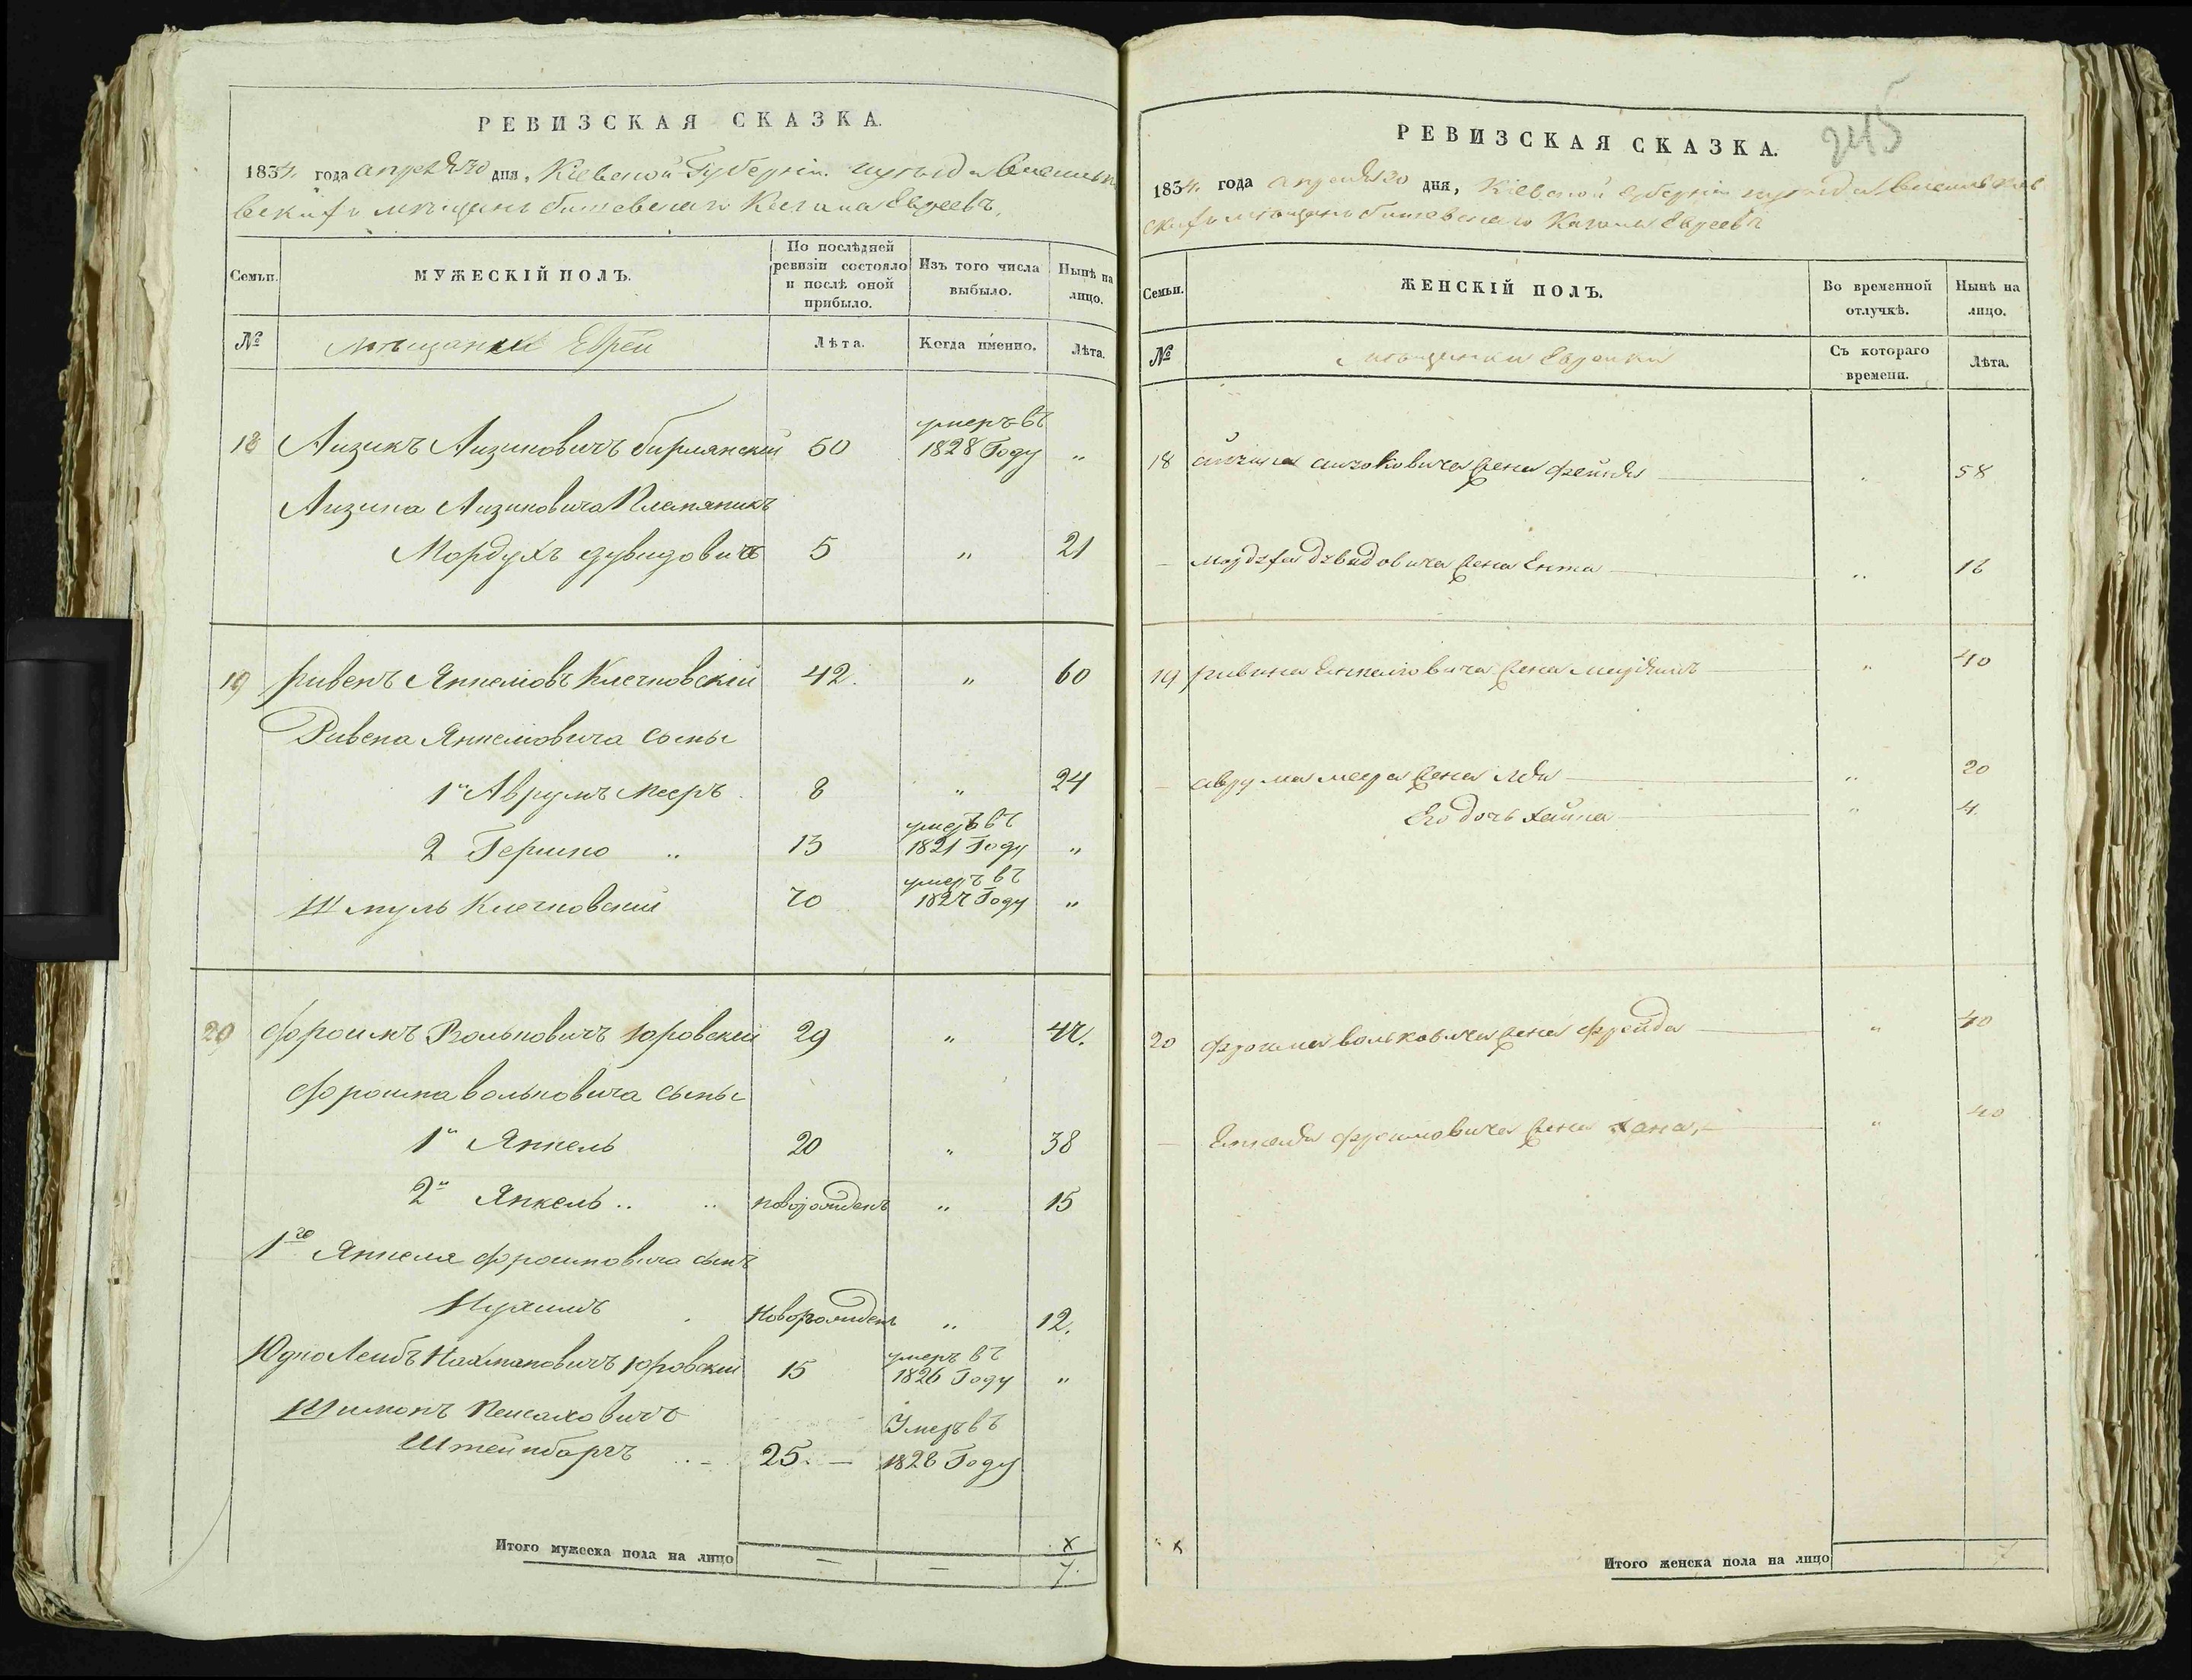 РЕВИЗСКАЯ СКАЗКА.
1834 года апреля 30 дня, Кіевской Губерніи
мѣщанъ Кагала Евреевъ,
Семьи. МУЖЕСКІЙ ПОЛЪ. По послѣдней ревизіи состояло и послѣ оной прибыло. Изъ того числа выбыло. Нынѣ на лицо.
№ мѣщанѣ Еврѣи Лѣта. Когда именно. Лѣта.
умеръ въ
18 Аизикъ Аизиковичъ бирманскій 50 1828 Году „
Аизика Аизиковича Племяникъ
Мордухъ дувидовичъ 5 „ 21
19 ривенъ Янкеліовъ Клечковскій 42. „ 60
Ривена Янкеліовича сыны
1й Аврумъ Мееръ 8 „ 24
умеръ въ
2 Гершко „ 13 1821 Году „
умеръ въ
Шмуль Клечковскій 70 1827 Году „
20 Фроимъ Вольковичъ Юровскій 29 „ 47.
Фроима вольковича сыны
1й Янкель 20 „ 38
2й Янкель новорожденъ „ 15
1го Янкеля фроимовича сынъ
Нухимъ новорожденъ „ 12.
умеръ въ
Юдко Леибъ Нахмановичъ юровскій 15 1826 Году „
Шимонъ Пейсаховичъ Умеръ въ
Штейнбаргъ 25. — 1828 Году
х
Итого мужеска пола на лицо — — 7.
245
РЕВИЗСКАЯ СКАЗКА.
1834 года апреля 30 дня, Кіевской Губерніи
мѣщанъ Кагала Евреевъ
Семьи. ЖЕНСКІЙ ПОЛЪ. Во временной отлучкѣ. Нынѣ на лицо.
№ мѣщанки Еврейки Съ котораго времени. Лѣта.
18 айзика айзиковича жена фейга „ 58
— дувидовича жена Ента „ 16
19 ривина Енкелиовича жена „ 40
— аврума меера жена Лея „ 20
Его дочь хайка „ 4.
20 фроима вольковича жена фрейда „ 40
— Енкеля фроимовича жена хана, „ 40
х
Итого женска пола на лицо 7